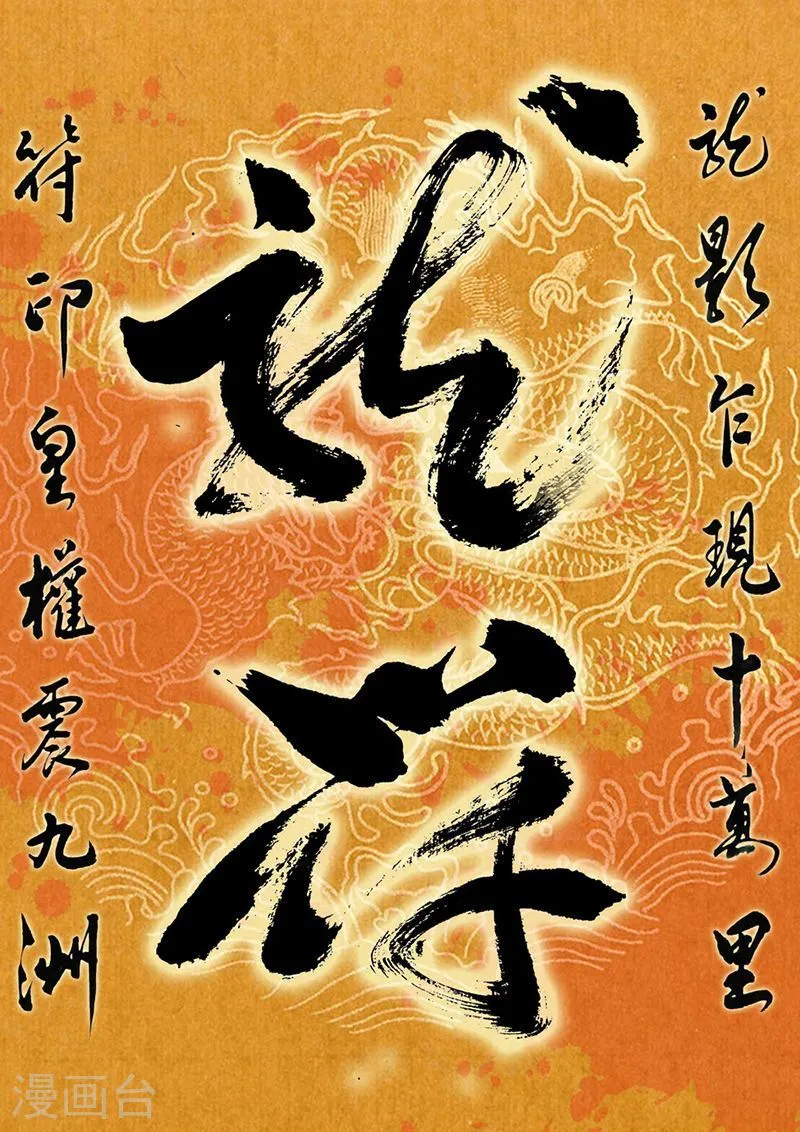 龍影乍現十萬里
龍符
符印皇權震九洲
漫画台